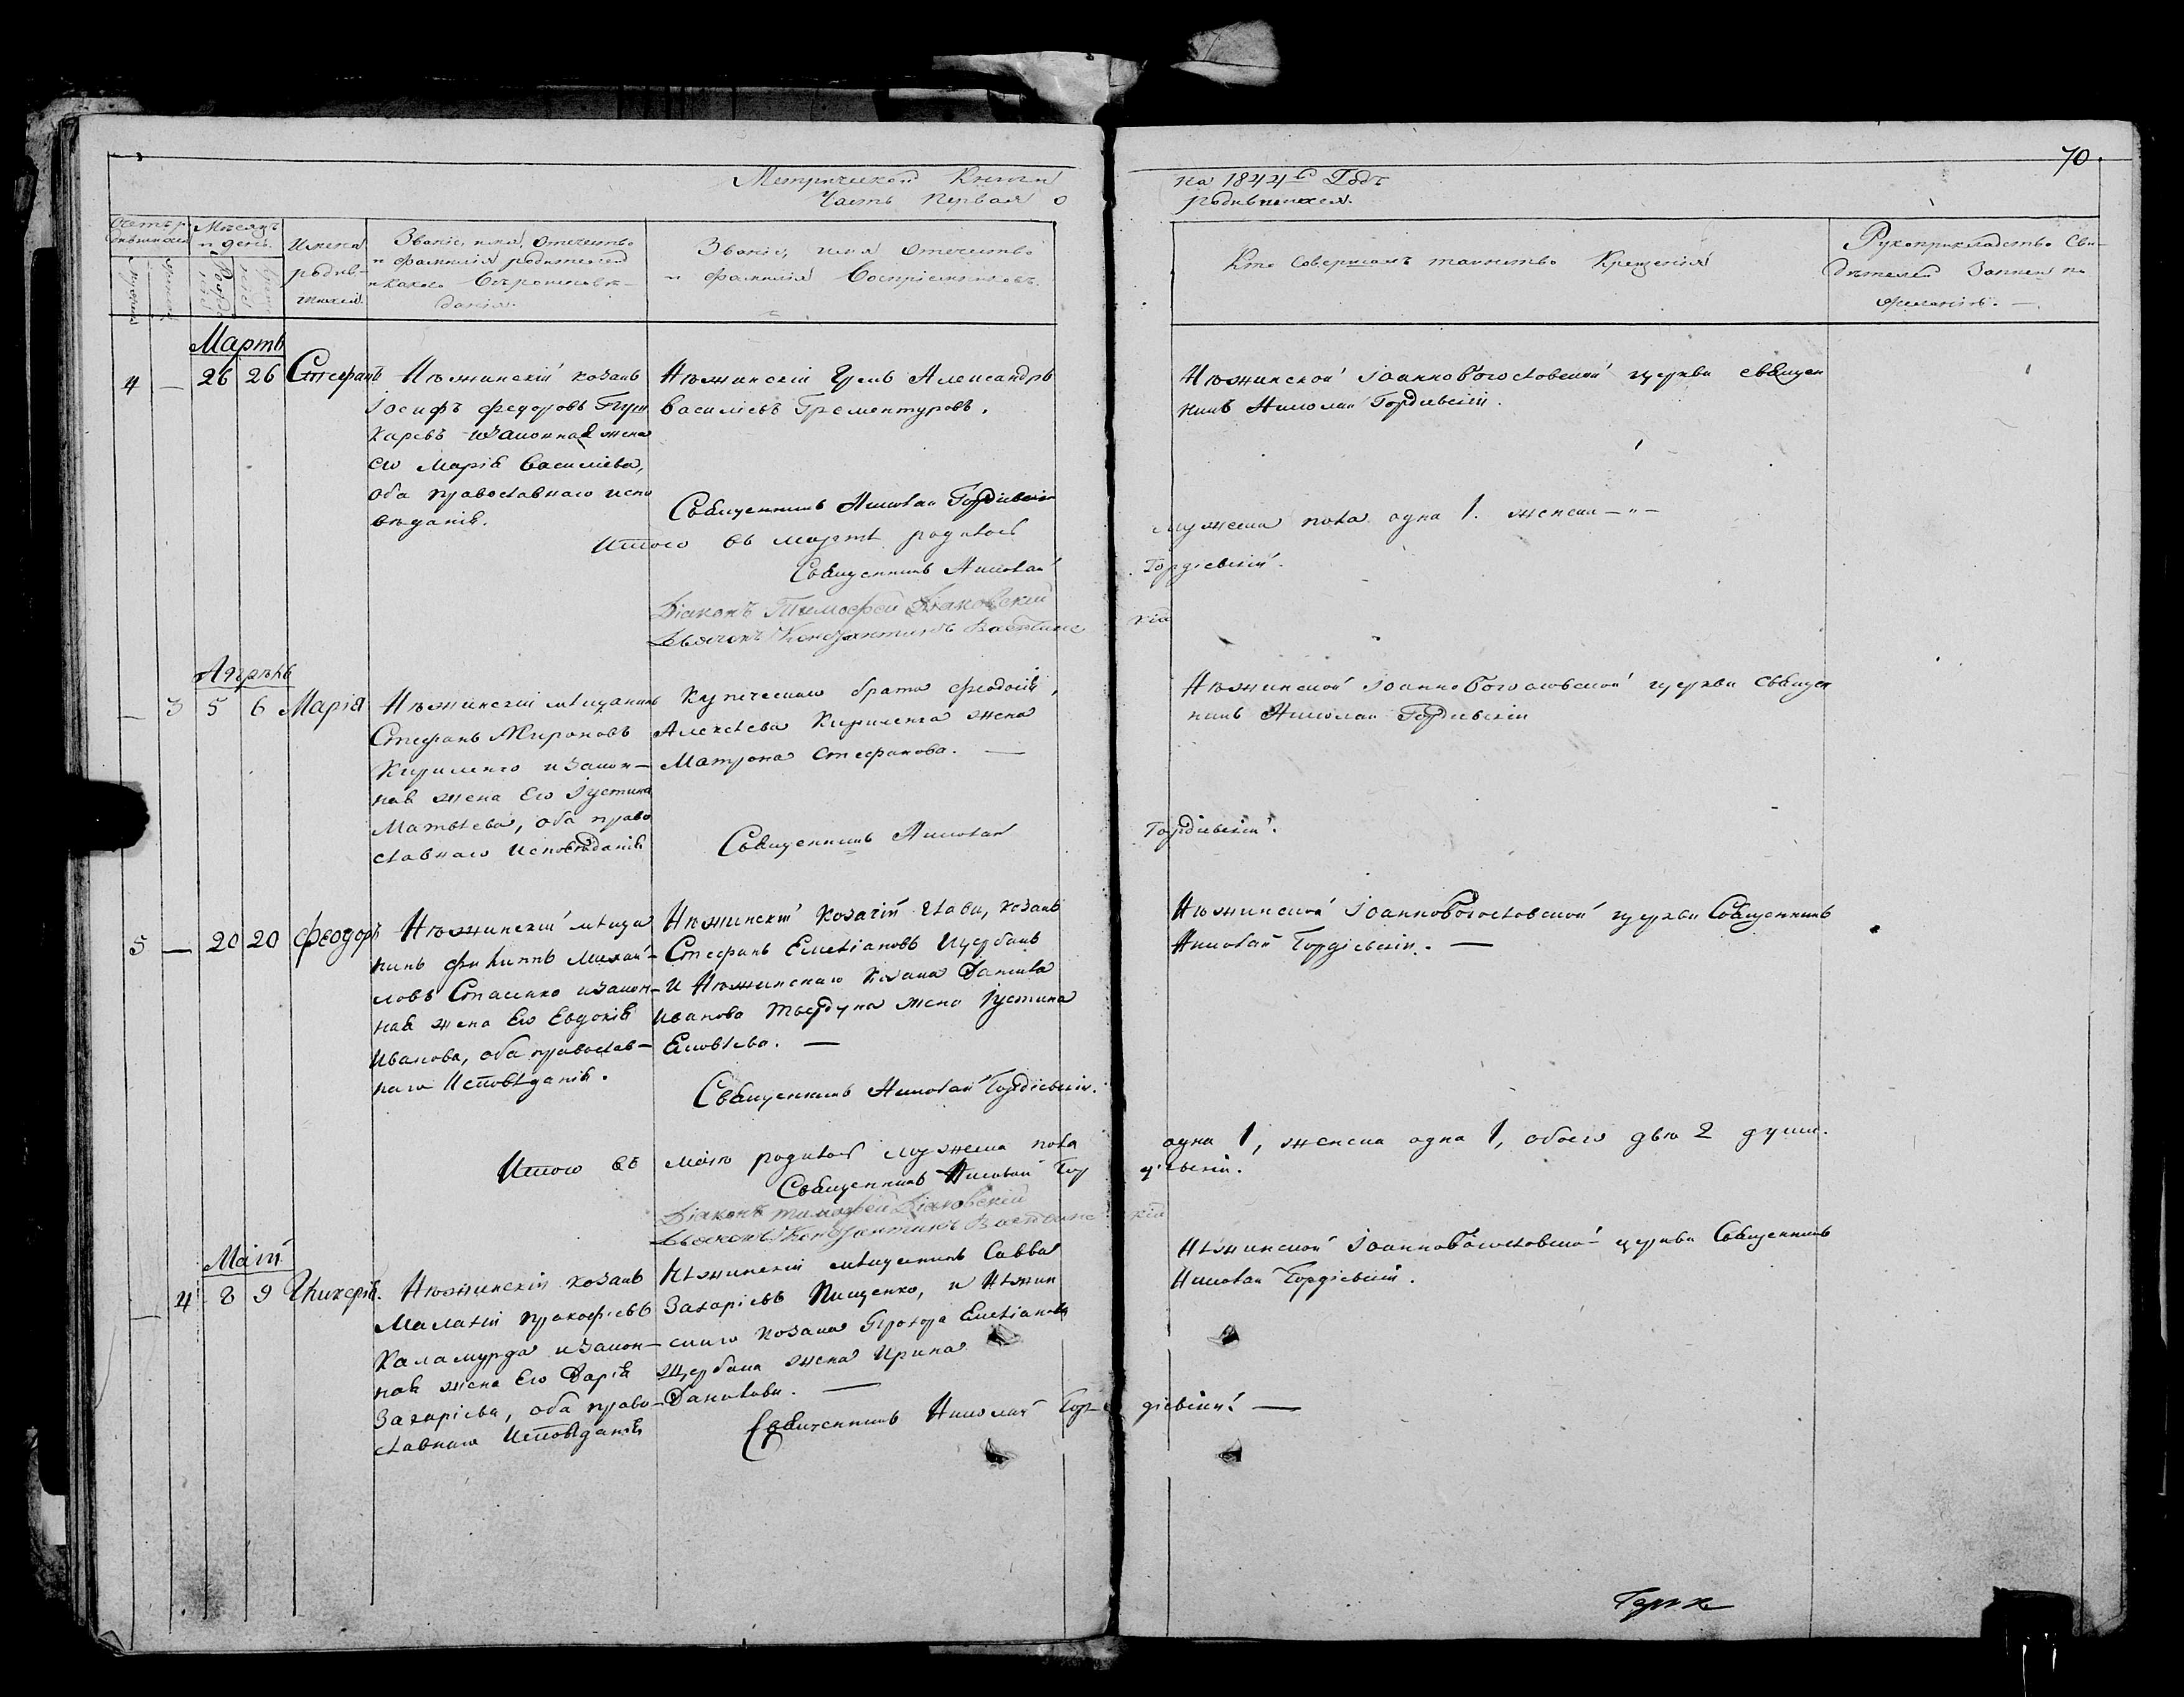 70.
Метрической Книги
Часть Первая о
на 1844й Годъ
родившихся.
Счетъ родившихся
Мѣсяцъ и день.
Имена родив-
шихся
Званіе, имя, Отчество
и Фамилія родителей
и какого Вѣроисповѣ-
данія.
Званіе, имя Отчество
и фамилія Воспріемниковъ.
Кто Совершалъ таинство Крещенія
Рукоприкладство Сви-
дѣтелей Записи по
желанію. —
Мартъ
4 — 26 26 Стефанъ
Нѣжинскій козакъ
Іосифъ Федоровъ Пуш
каревъ изаконная жена
его Марія Василіева,
оба православнаго испо
вѣданія.
Нѣжинскій Грекъ Александръ
Василіевъ
Священникъ Николай Гордіевскій
Нѣжинской Іоанно Богословской церкви священ
никъ Николай Гордіевскій.
Итого въ мартѣ родилось
мужеска пола одна 1. женска — " —
Священникъ Николай
Гордіевскій.
Діаконъ Тимофей Діаковскій
Дьячокъ Константинъ
кій
Апрѣль
— 3 5 6 Марія
Нѣжинскій мѣщанинъ
Стефанъ Мироновъ
Кириленко изакон—
ная жена Его Іустина
Матвѣева, оба право
славнаго Исповѣданія
Купеческаго брата Феодосія,
Алексѣева Кириленка жена
Матрона Стефанова. —
Священникъ Николай
Гордіевскій.
Нѣжинской Іоанно Богословской церкви Священ
никъ Николай Гордіевскій
5 — 20 20 Феодоръ
Нѣжинскій мѣща
нинъ Филиппъ Михай-
ловъ Стасенко изакон—
ная жена Его Евдокія
Иванова, оба православ—
наго Исповѣданія.
Нѣжинскій козачій
козакъ
Стефанъ Емеліановъ Щербакъ
и Нѣжинскаго Козака Данила
Иванова жена Іустина
Священникъ Николай Гордіевскій.
Нѣжинской Іоанно Богословской церкви Священникъ
Николай Гордіевскій. —
Итого въ маію родилось мужеска пола
одна 1, женска одна 1, обоего двѣ 2 души.
Священникъ Николай Гор
діевскій.
Діаконъ Тимофей Діаковскій
Дьячокъ Константинъ
кій
Маій
— 4 8 9 Гликерія.
Нѣжинскій козакъ
Малахій Прокофіевъ
Каламурда изакон—
ная жена Его Дарія
Захаріева, оба право-
славнаго Исповѣданія
Нѣжинскій мѣщанинъ Савва
Захаріевъ Пищенко, и Нѣжин
скаго Козака Прохора Емеліанова
Щербака жена Ирина
Данилова. —
Священникъ Николай Гор
діевскій. —
Нѣжинской Іоанно Богословской церкви Священникъ
Николай Гордіевскій.